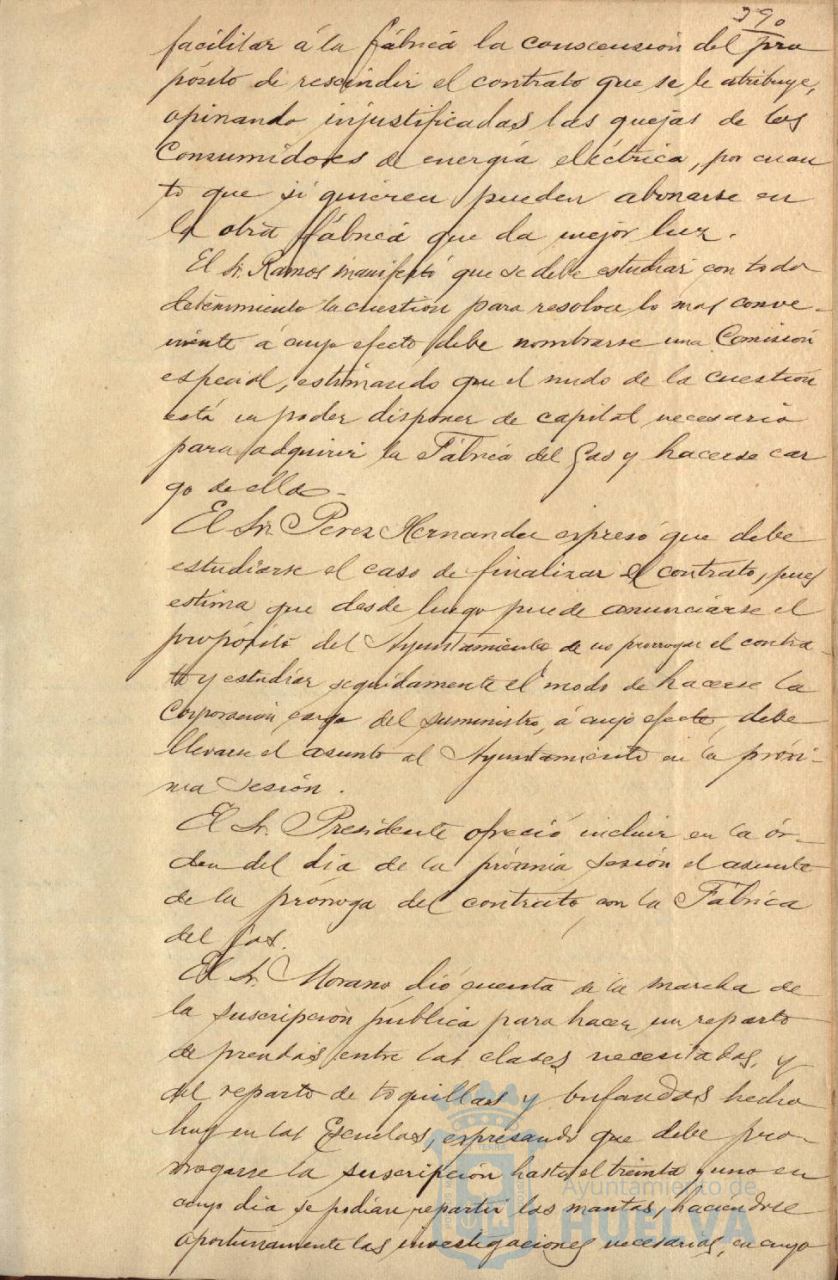 390
facilitar á la fábrica la consecución del pro
pósito de rescindir el contrato que se le atribuye,
opinando injustificadas las quejas de los
Consumidores de energía eléctrica, por cuan
to que si quieren pueden abonarse en
la otra fábrica que da mejor luz.
El Sr. Ramos manifestó que se debe estudiar con todo
detenimiento la cuestión para resolver lo mas conve-
niente á cuyo efecto debe nombrarse una Comisión
especial, estimando que el nudo de la cuestión
está en poder disponer de capital necesario
para adquirir la Fábrica del Gas y hacerse car
go de ella.
El Sr. Perez Hernandez expresó que debe
estudiarse el caso de finalizar el contrato, pues
estima que desde luego puede anunciarse el
propósito del Ayuntamiento de no prorrogar el contra-
to y estudiar seguidamente el modo de hacerse la
Corporación cargo del suministro, á cuyo efecto, debe
llevarse el asunto al Ayuntamiento en la próxi-
ma sesión.
El Sr. Presidente ofreció incluir en la ór-
den del dia de la próxima sesión el asunto
de la prórroga del contrato con la Fábrica
del Gas.
El Sr. Morano, dió cuenta de la marcha de
la suscripción pública para hacer un reparto
de prendas entre las clases necesitadas, y
del reparto de toquillas y bufandas hecho
hoy en las Escuelas, expresando que debe pro-
rrogarse la suscripción hasta el treinta y uno en
cuyo dia se podían repartir las mantas, haciéndose
oportunamente las investigaciones necesarias, en cuyo
Ayuntamiento de
HUELVA